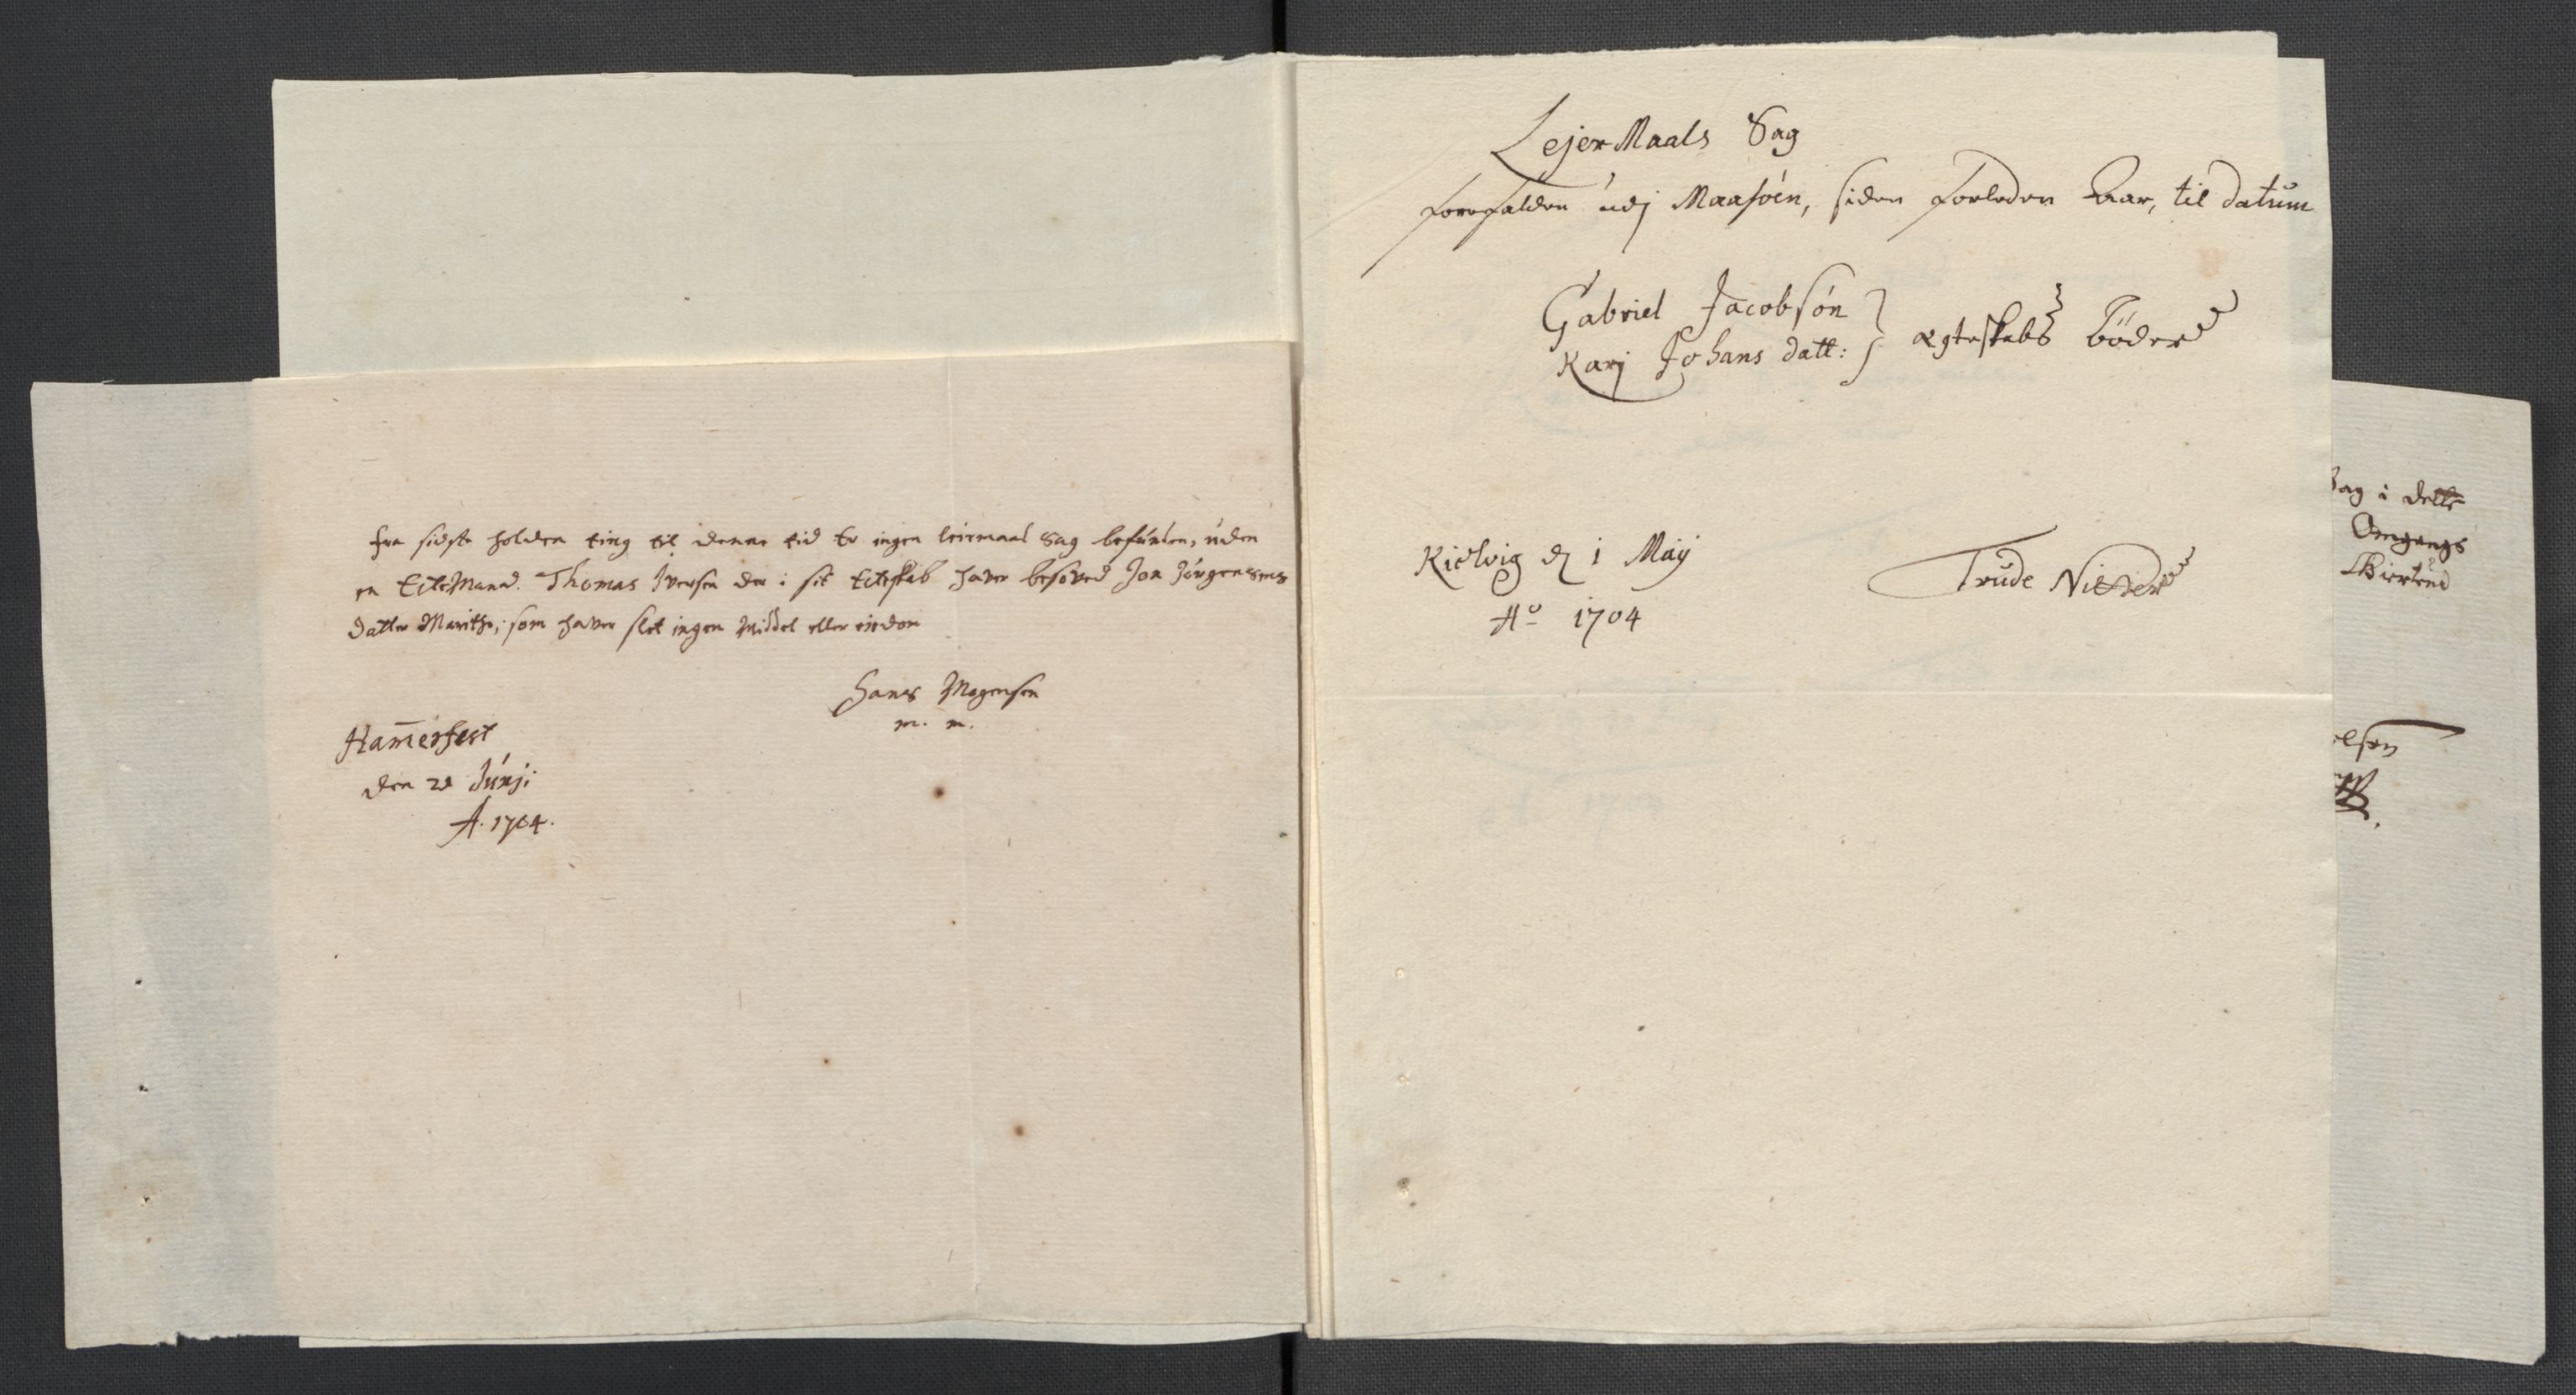 fra sidste holden ting til denne tid er ingen leiermaal Sag befunden, uden
en EcteMand. Thomas Iversen der i sit Ecteskab haver besoved Jon Jörgensens
datter Marithe, som haver slet ingen Middel eller eiedom
Hans Mogensen
m. m.
Ham̄erfest
den 2d Junji
A. 1704.
LejerMaals Sag
forefalden udj Maasöen, siden forleden Aar, til datum
Gabriel Jacobsön
Karj Johans datt:
ægteskabs böder
Kielvig d 1 Maij
Aº 1704
Trude Nitter
Sag i dette
Omgangs
elsen